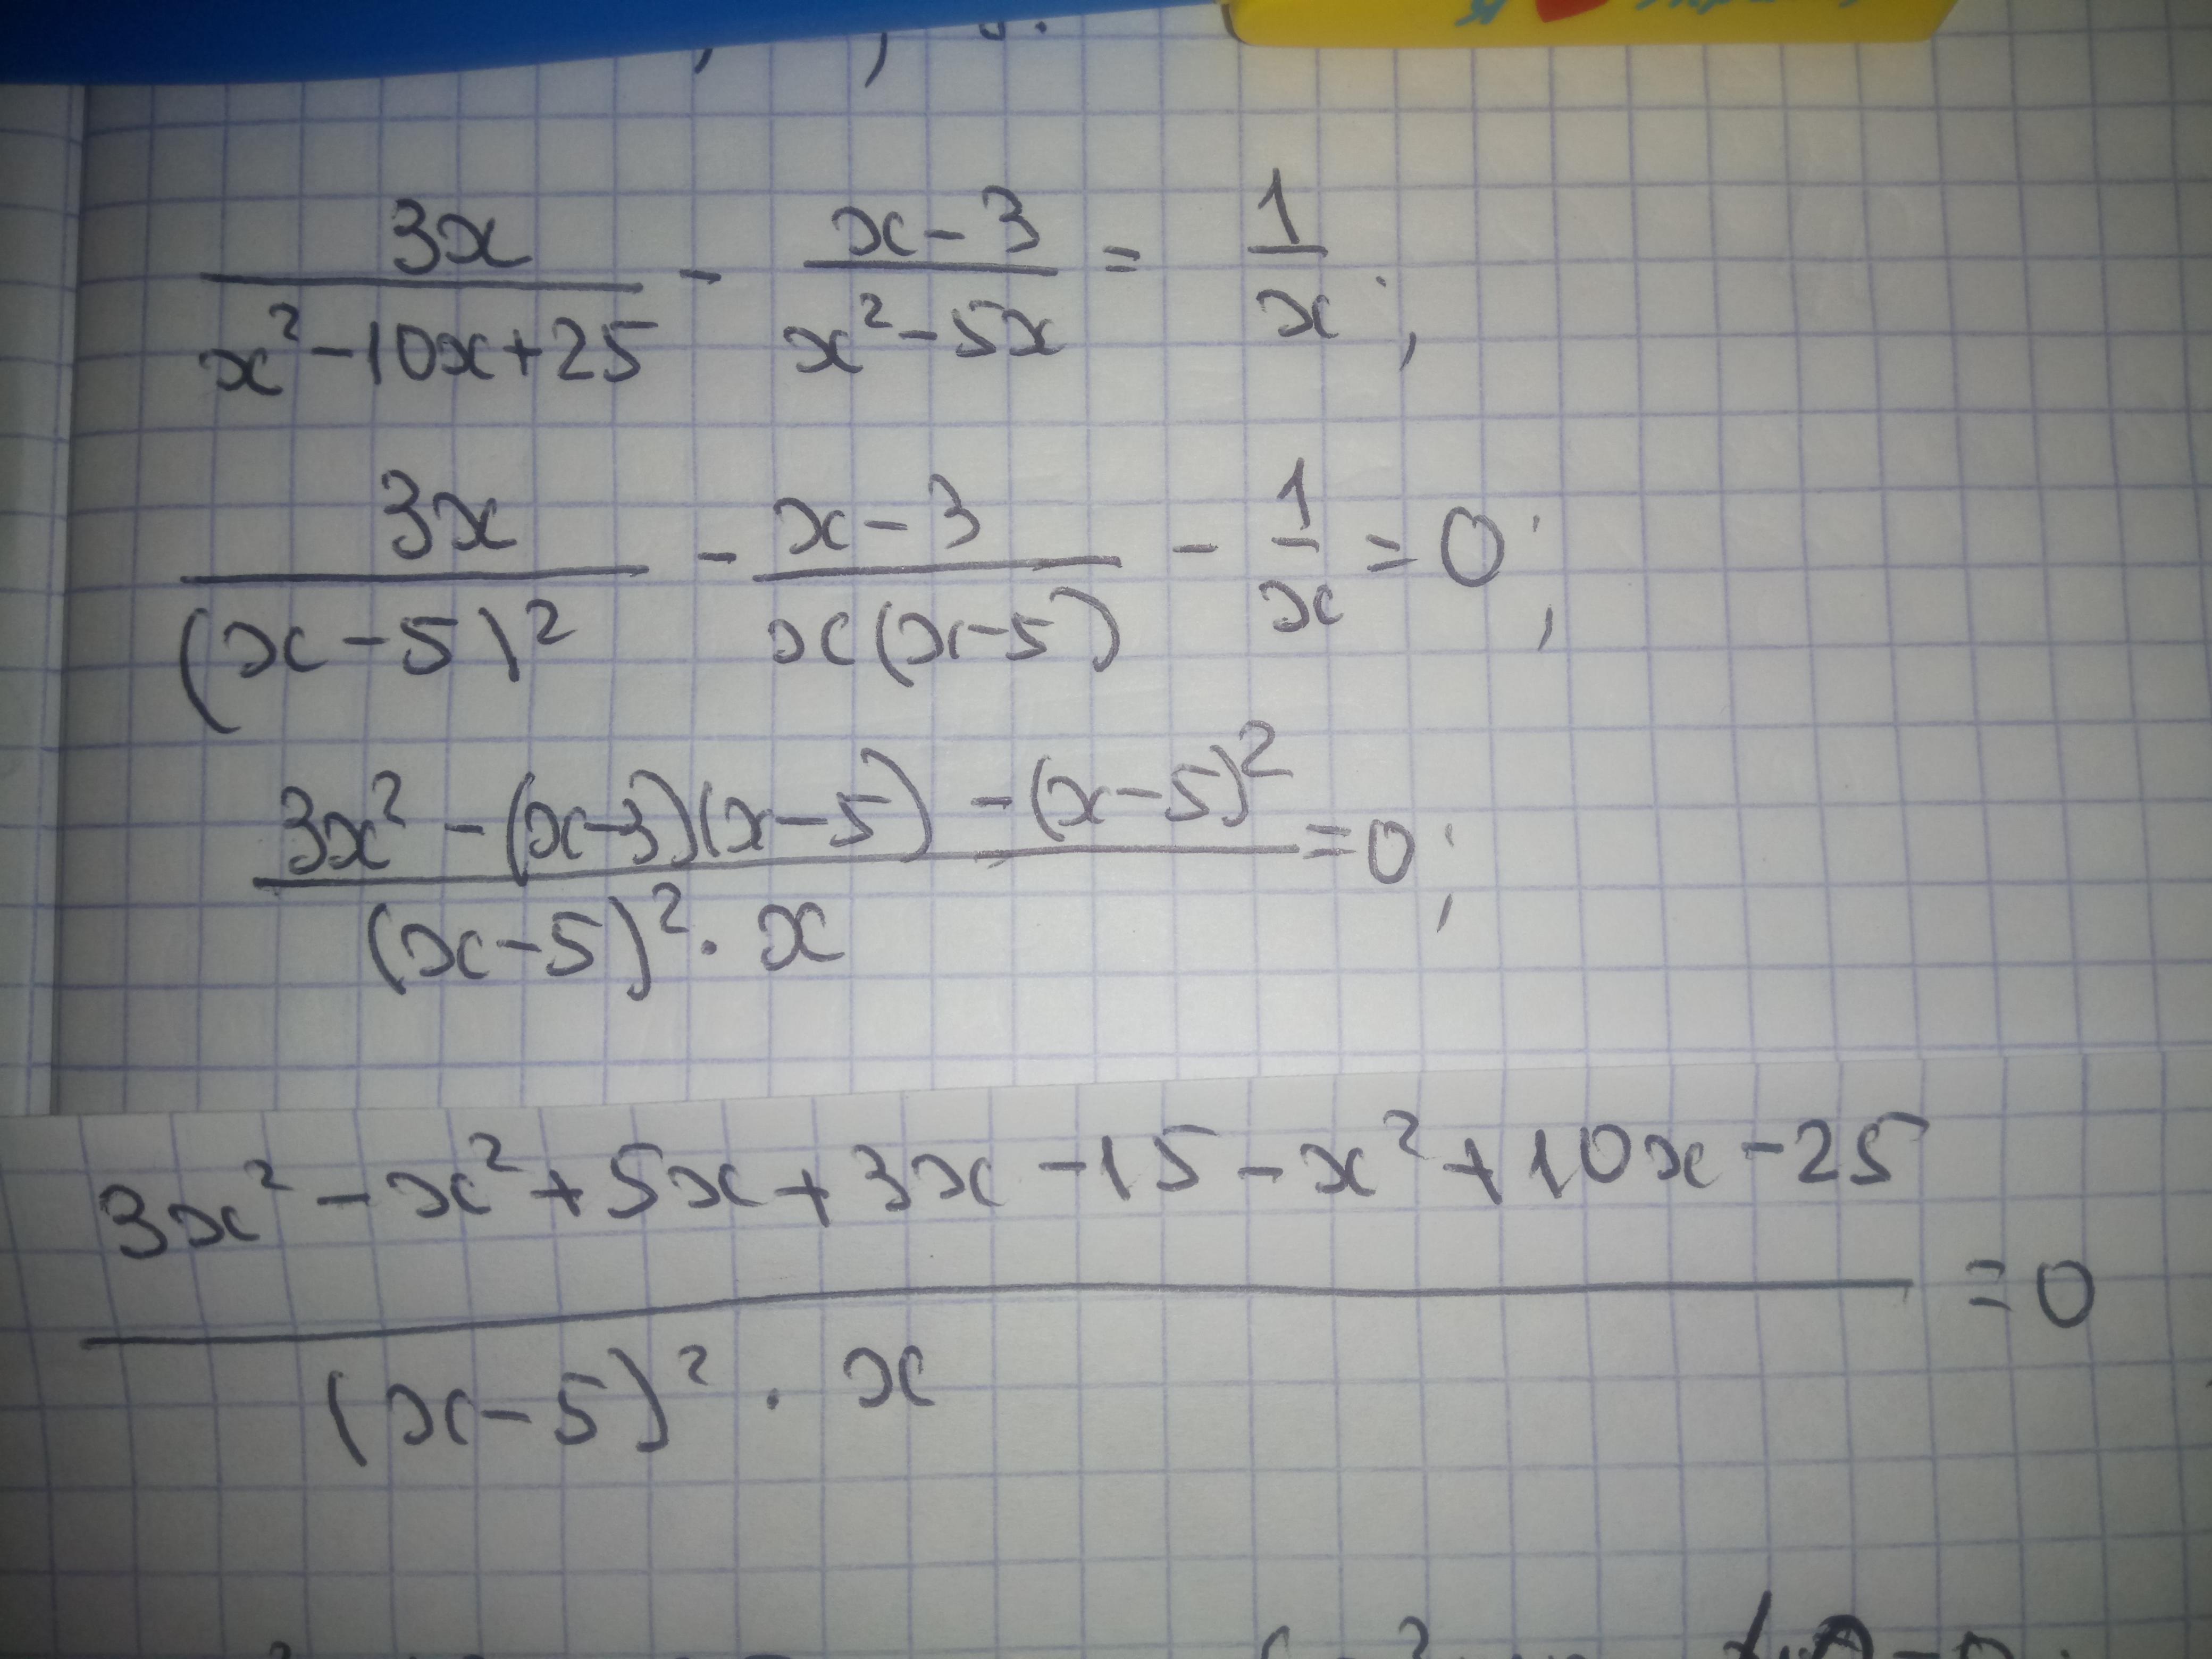 3x/(x²-10x+25) - (x-3)/(x²-5x) = 1/x;
3x/(x-5)² - (x-3)/(x(x-5)) - 1/x = 0;
(3x² - (x-3)(x-5) - (x-5)²)/((x-5)² · x) = 0;
(3x² - x² + 5x + 3x - 15 - x² + 10x - 25)/((x-5)² · x) = 0